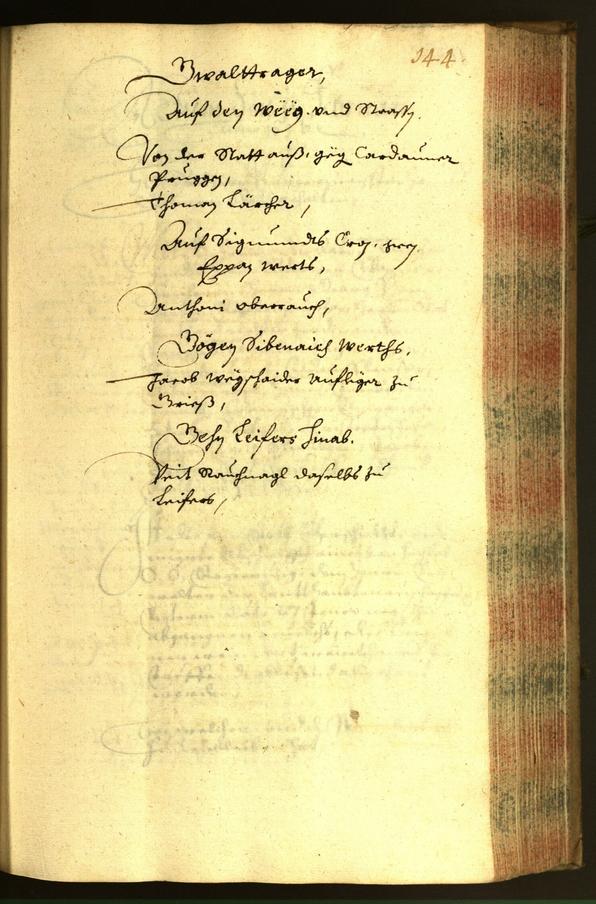 144
Gwalttrager,
Auf den Weeg. vnd Strassn.
Von der Statt auß, geg Cardauner
Pruggen,
Thoman Lärcher,
Auf Sigmundts Cron, gegen
Eppan werts,
Anthoni oberrauch,
Gögen Sibenaich Werths.
Jacob Weyschaider Aufliger zu
Grieß,
Gehn Leifers hinab.
Veit Rauchnagl daselbs zu
Leifers,